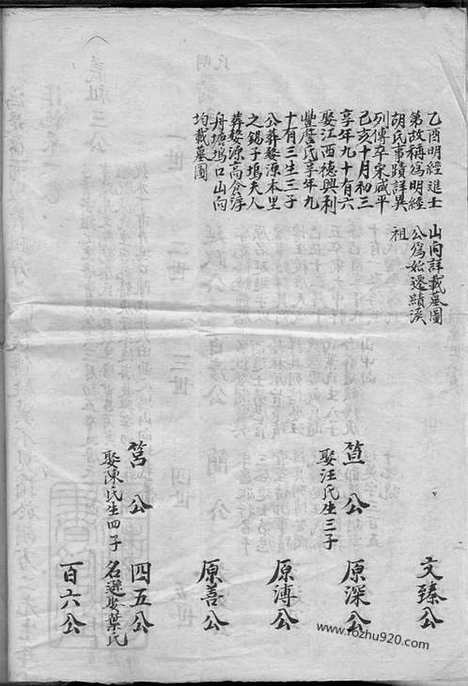 乙酉明經進士
第故稱爲明經
胡氏事蹟詳異
列傳卒宋咸平
己亥十月初三
享年九十有六
娶江西德興利
豐詹氏享年九
十有三生三子
公葬婺源本里
之錫子塢夫人
葬婺源尚食淳
舟塘塢口山向
均載墓圖
山向詳載墓圖
公爲始遷蹟溪
祖
文臻公
笪公
娶汪氏生三子
原深公
原溥公
原善公
筥公
娶陳氏生四子
四五公
名選娶葉氏
百六公
www.fozhu920.com